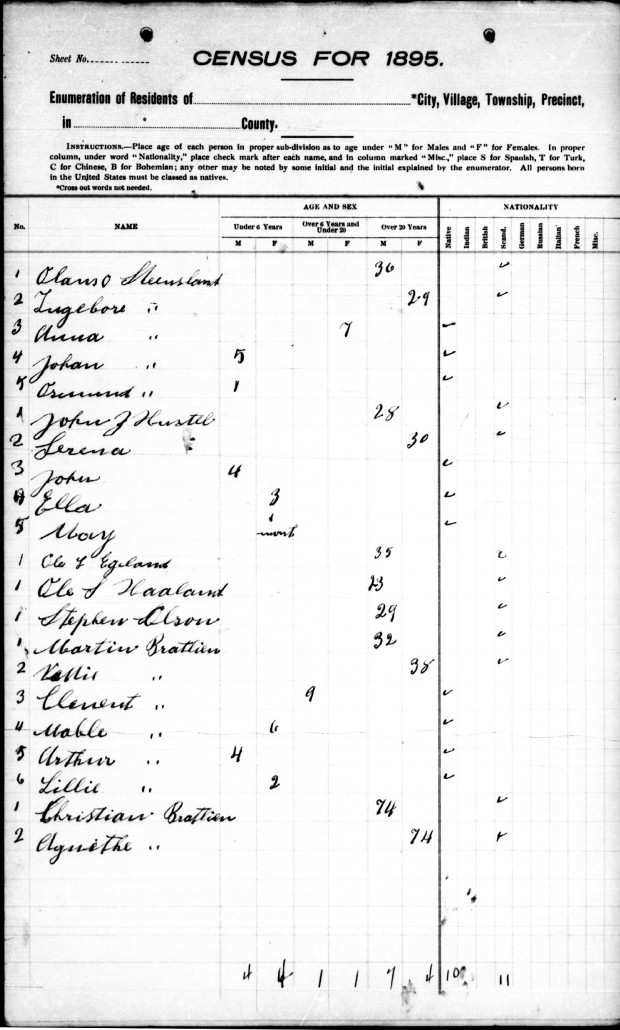 Sheet No.
CENSUS FOR 1895.
Enumeration of Residents of *City, Village, Township, Precinct,
in County.
INSTRUCTIONS.—Place age of each person in proper sub-division as to age under "M" for Males and "F" for Females. In proper
column, under word "Nationality," place check mark after each name, and in column marked "Misc.," place S for Spanish, T for Turk,
C for Chinese, B for Bohemian; any other may be noted by some initial and the initial explained by the enumerator. All persons born
in the United States must be classed as natives.
*Cross out words not needed.
AGE AND SEX NATIONALITY
No. NAME Under 6 Years Over 6 Years and Under 20 Over 20 Years Native Indian British Scand. German Russian Italian French Misc.
M F M F M F
1 Olans O Steensland 36 ✓
2 Ingebore " 29 ✓
3 Anna " 7 ✓
4 Johan " 5 ✓
5 Osmund " 1 ✓
1 John J Hustel 28 ✓
2 Serena 30 ✓
3 John 4 ✓
4 Ella 3 ✓
5 May 1 mont ✓
1 Ole Egeland 35 ✓
1 Ole S Haaland 23 ✓
1 Stephen Olson 29 ✓
1 Martin Brattien 32 ✓
2 Nellie " 38 ✓
3 Clement " 9 ✓
4 Mable " 6 ✓
5 Arthur " 4 ✓
6 Lillie " 2 ✓
1 Christian Brattien 74 ✓
2 Agnethe " 74 ✓
4 4 1 1 7 4 10 11